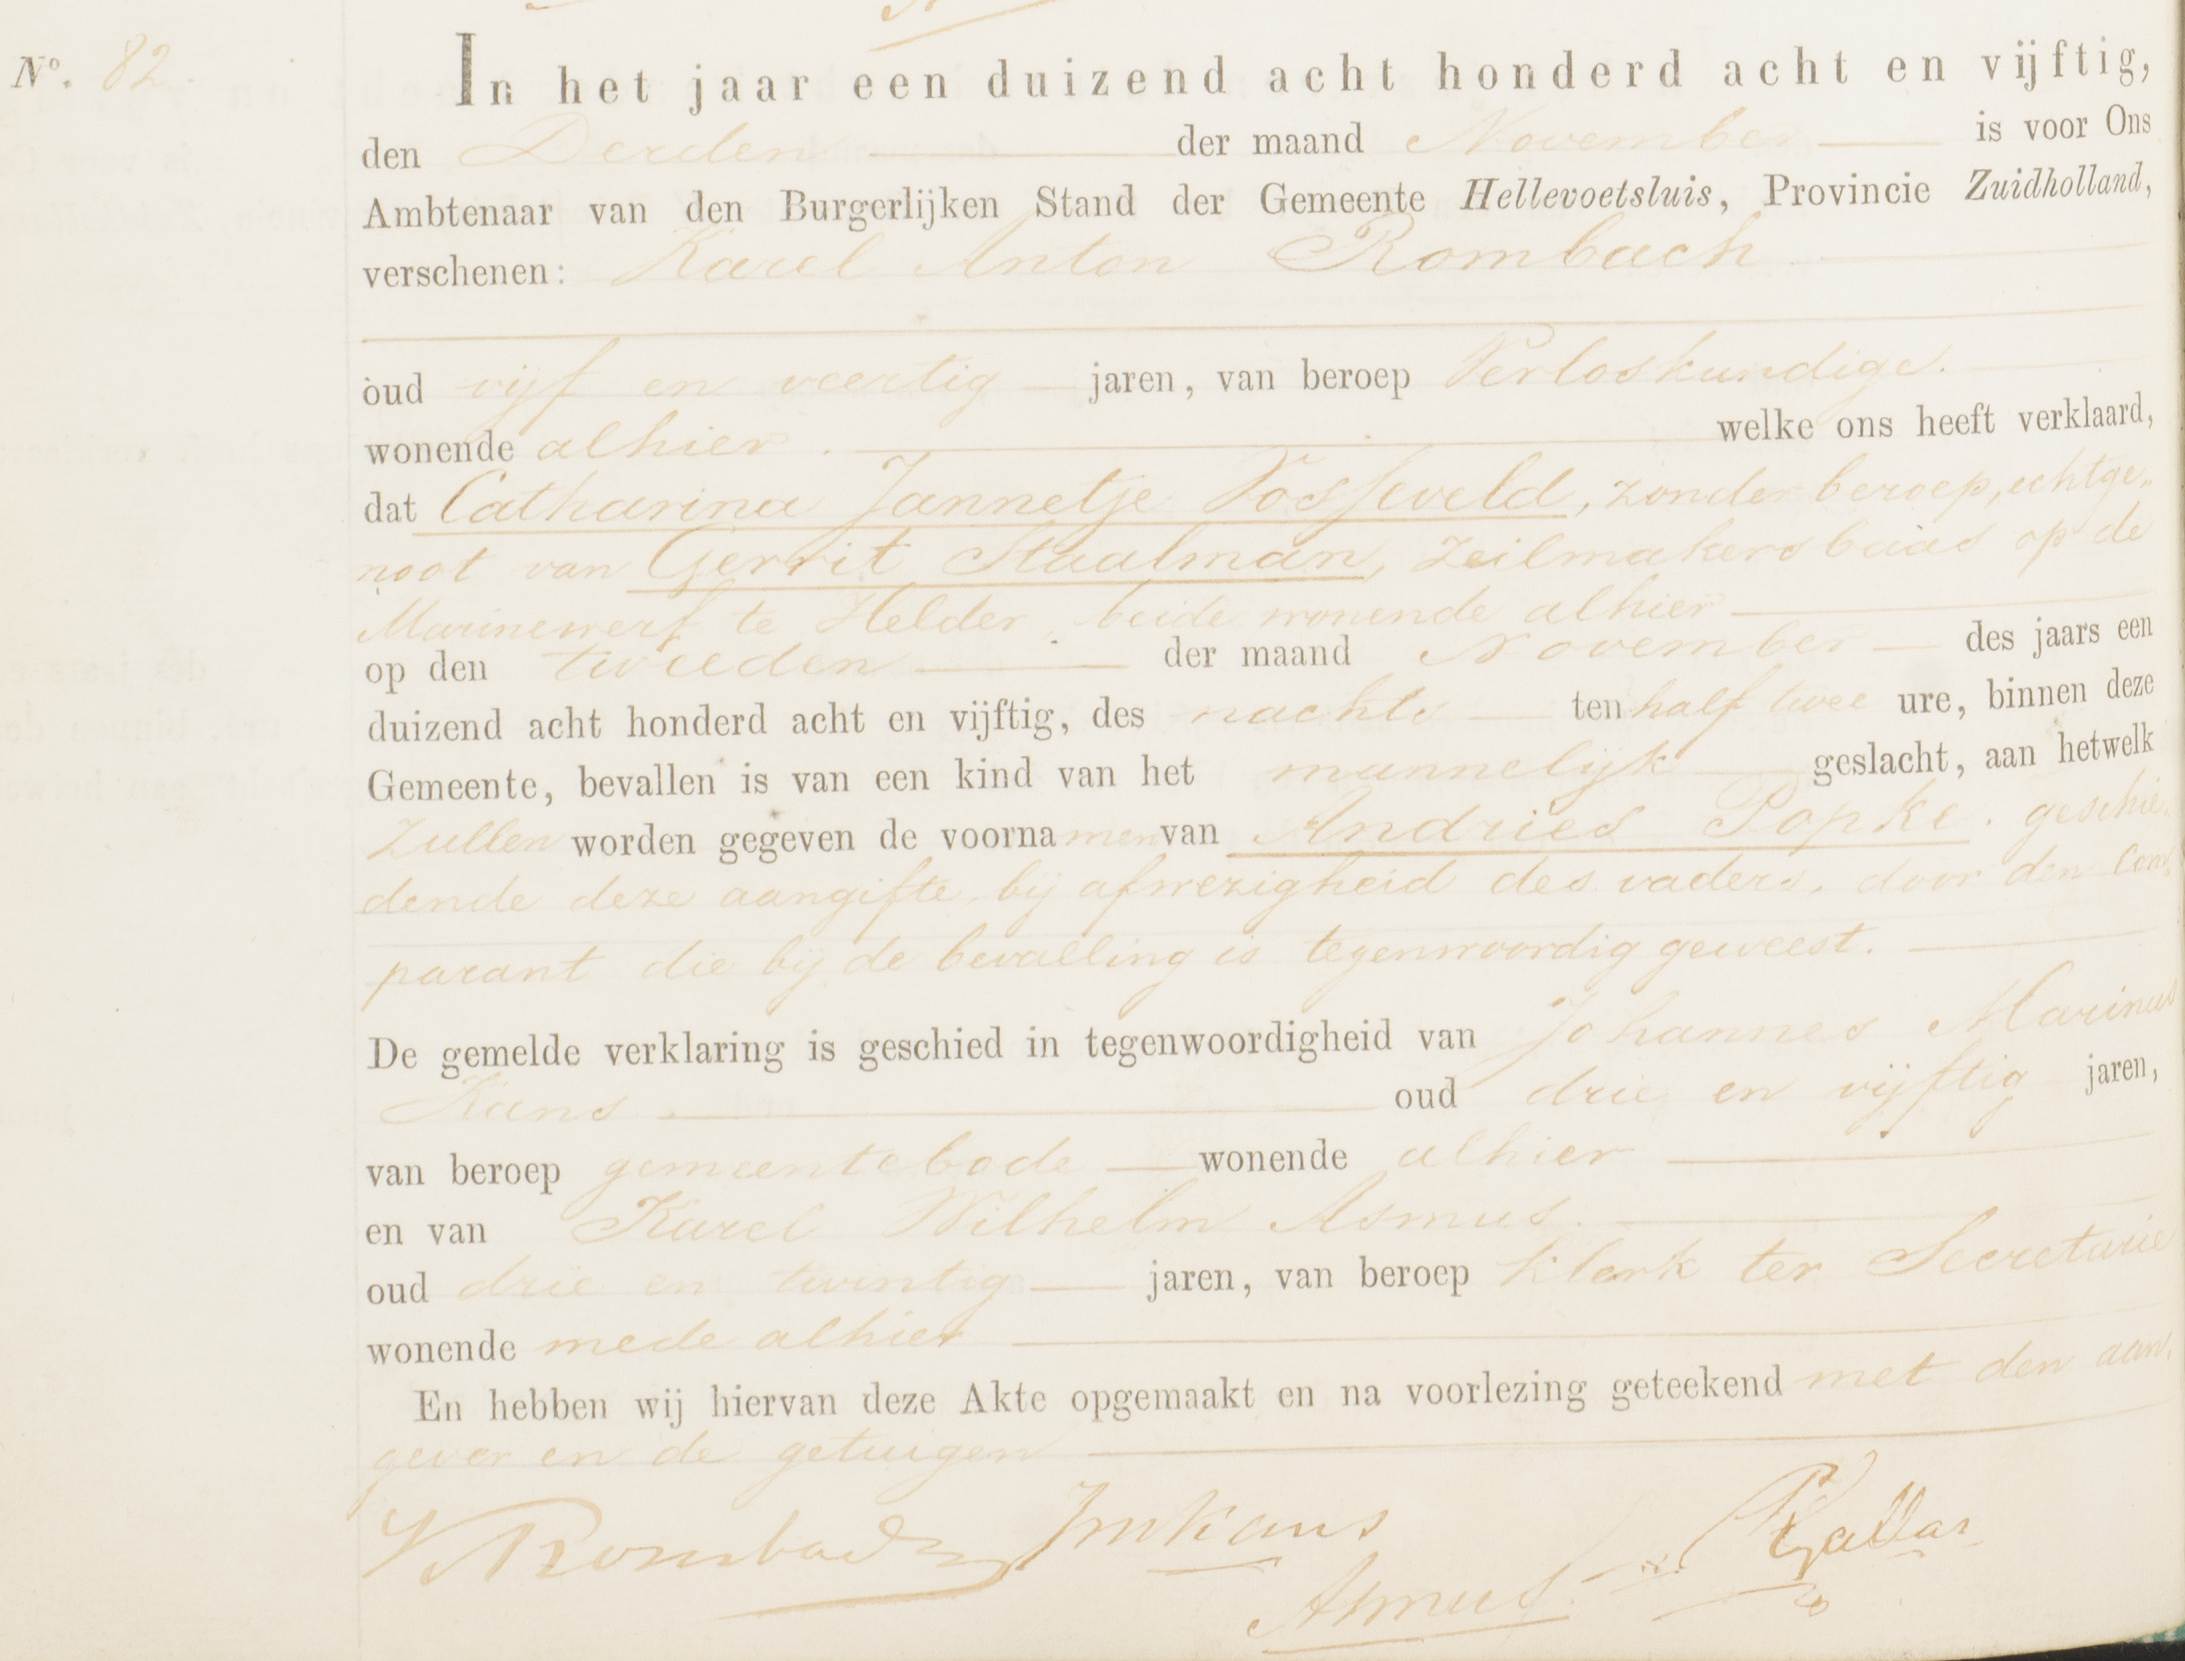 Nº. 82.
In het jaar een duizend acht honderd acht en vijftig,
den Derden der maand November is voor Ons
Ambtenaar van den Burgerlijken Stand der Gemeente Hellevoetsluis, Provincie Zuidholland,
verschenen: Karel Anton Rombach
oud vijf en veertig jaren, van beroep Verloskundige.
wonende alhier. welke ons heeft verklaard,
dat Catharina Jannetje Vosseveld, zonder beroep, echtge„
noot van Gerrit Staalman, Zeilmakersbaas op de
Marinewerf te Helder, beide wonende alhier
op den tweeden der maand November des jaars een
duizend acht honderd acht en vijftig, des nachts ten half twee ure, binnen deze
Gemeente, bevallen is van een kind van het mannelijk geslacht, aan hetwelk
zullen worden gegeven de voornamen van Andries Popke. geschie„
dende deze aangifte, bij afwezigheid des vaders, door den Com„
parant die bij de bevalling is tegenwoordig geweest.
De gemelde verklaring is geschied in tegenwoordigheid van Johannes Marinus
Kans oud drie en vijftig jaren,
van beroep gemeentebode wonende alhier
en van Karel Wilhelm Asmus.
oud drie en twintig jaren, van beroep klerk ter Secretarie
wonende mede alhier
En hebben wij hiervan deze Akte opgemaakt en na voorlezing geteekend met den aan„
gever en de getuigen
Rombach JMKans
Asmus